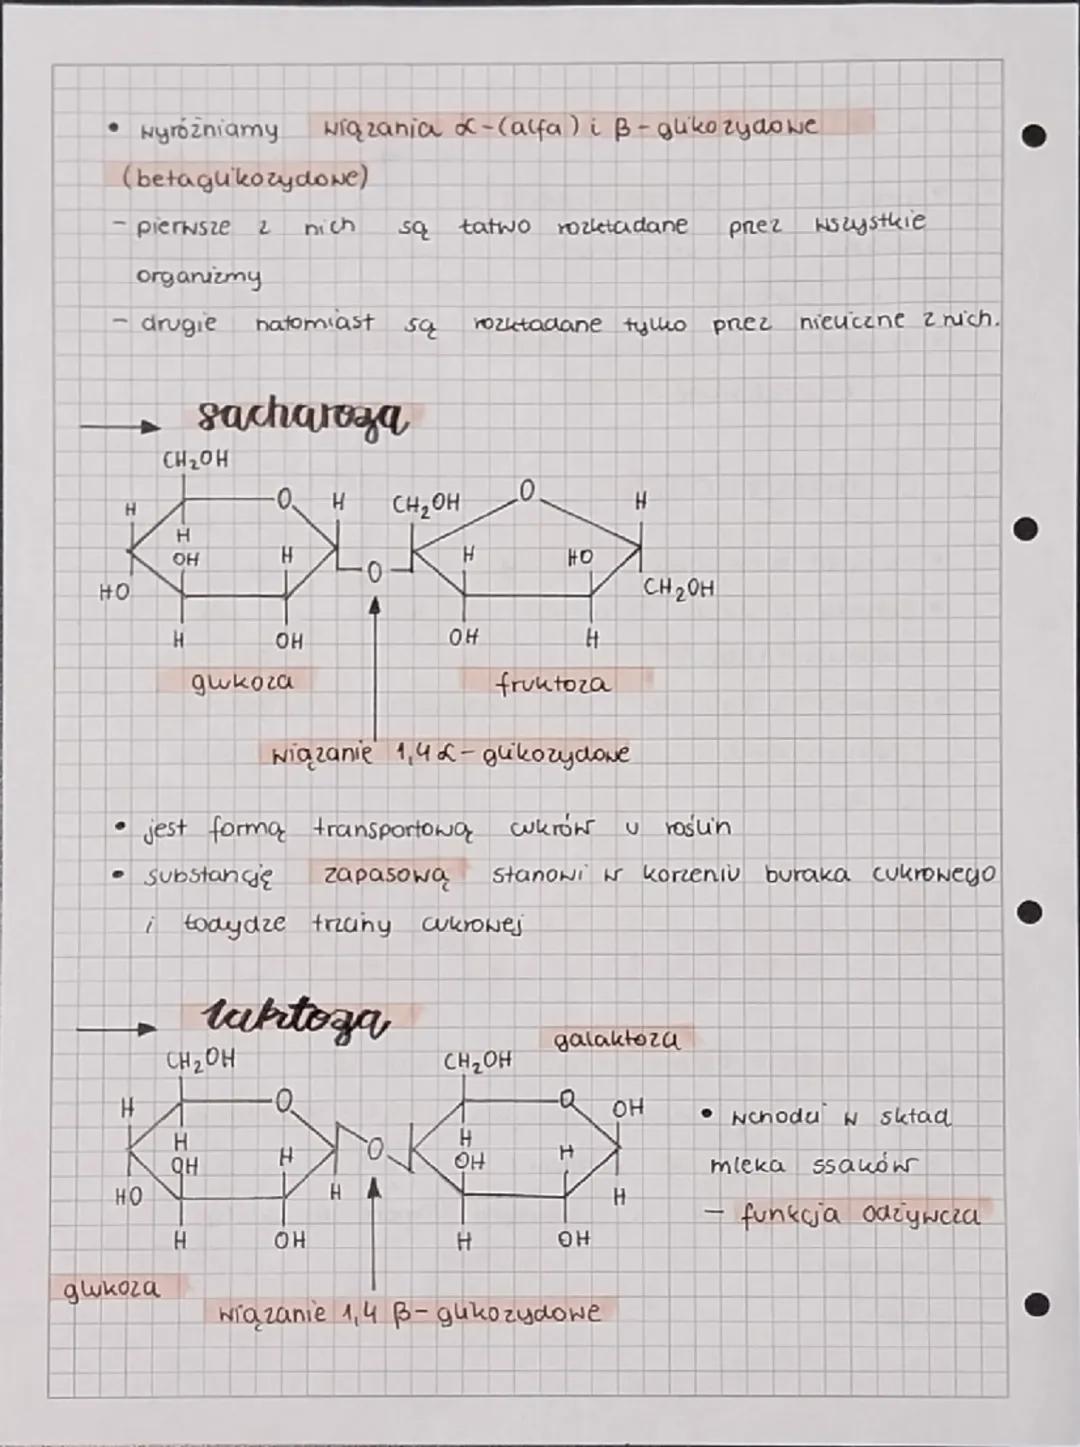 • wyróżniamy wiązania α-(alfa) i β-glikozydowe
(betaglikozydowe)
- pierwsze z nich są łatwo rozkładane przez wszystkie
organizmy
- drugie natomiast są rozkładane tylko przez nieliczne z nich.
sacharoza
CH₂OH
O H CH₂OH O H
H
H
OH H H HO
HO O CH₂OH
H OH OH H
glukoza fruktoza
wiązanie 1,4 α-glikozydowe
• jest formą transportową cukrów u roślin
• substancję zapasową stanowi w korzeniu buraka cukrowego
i łodydze trzciny cukrowej
laktoza
galaktoza
CH₂OH CH₂OH
H O O OH
H H
OH H O OH H
HO H H
H OH H OH
• wchodzi w skład
mleka ssaków
- funkcja odżywcza
glukoza
wiązanie 1,4 β-glikozydowe